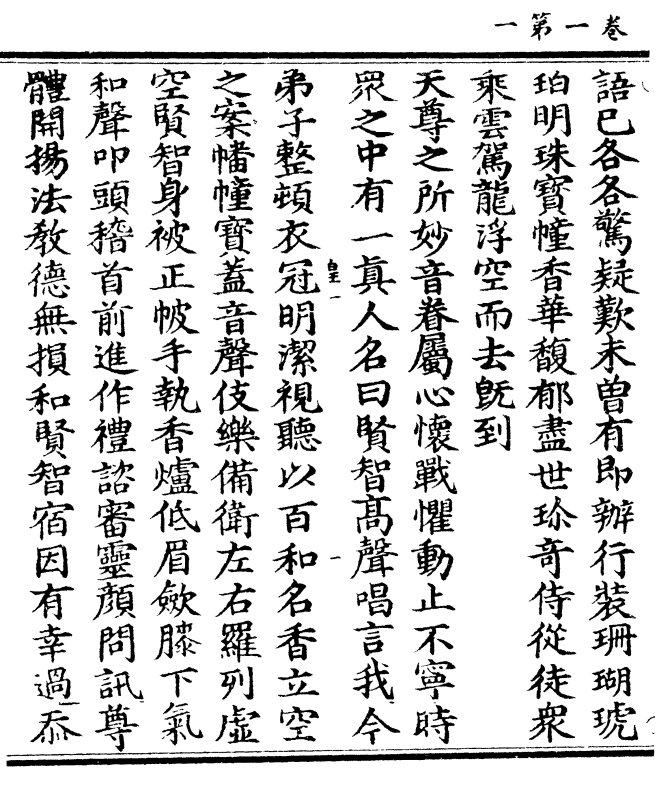 卷一第一
語已各各驚疑歎未曾有即辦行裝珊瑚琥
珀明珠寶幢香華馥郁盡世珎奇侍從徒衆
乘雲駕龍浮空而去旣到
天尊之所妙音眷屬心懷戰懼動止不寧時
衆之中有一眞人名曰賢智髙聲唱言我今
皇一
弟子整頓衣冠明潔視聽以百和名香立空
之案幡幢寶蓋音聲伎樂備衛左右羅列虛
空賢智身被正帔手執香爐低眉歛膝下氣
和聲叩頭稽首前進作禮諮審靈顔問訊尊
體開揚法教德無損和賢智宿因有幸過忝